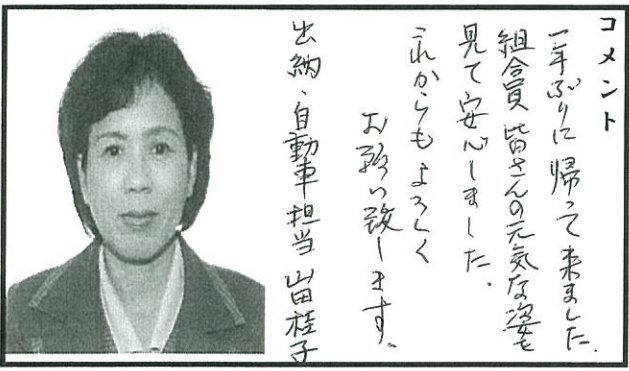 コメント
一年ぶりに帰って来ました.
組合員皆さんの元気な姿を
見て安心しました.
これからもよろしく
お願い致します.
出納、自動車担当 山田桂子